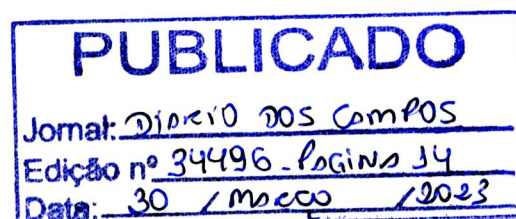 PUBLICADO
Jornal: DIÁRIO DOS CAMPOS
Edição nº 34496 - PáGINA 14
Data: 30 / MARÇO / 2023